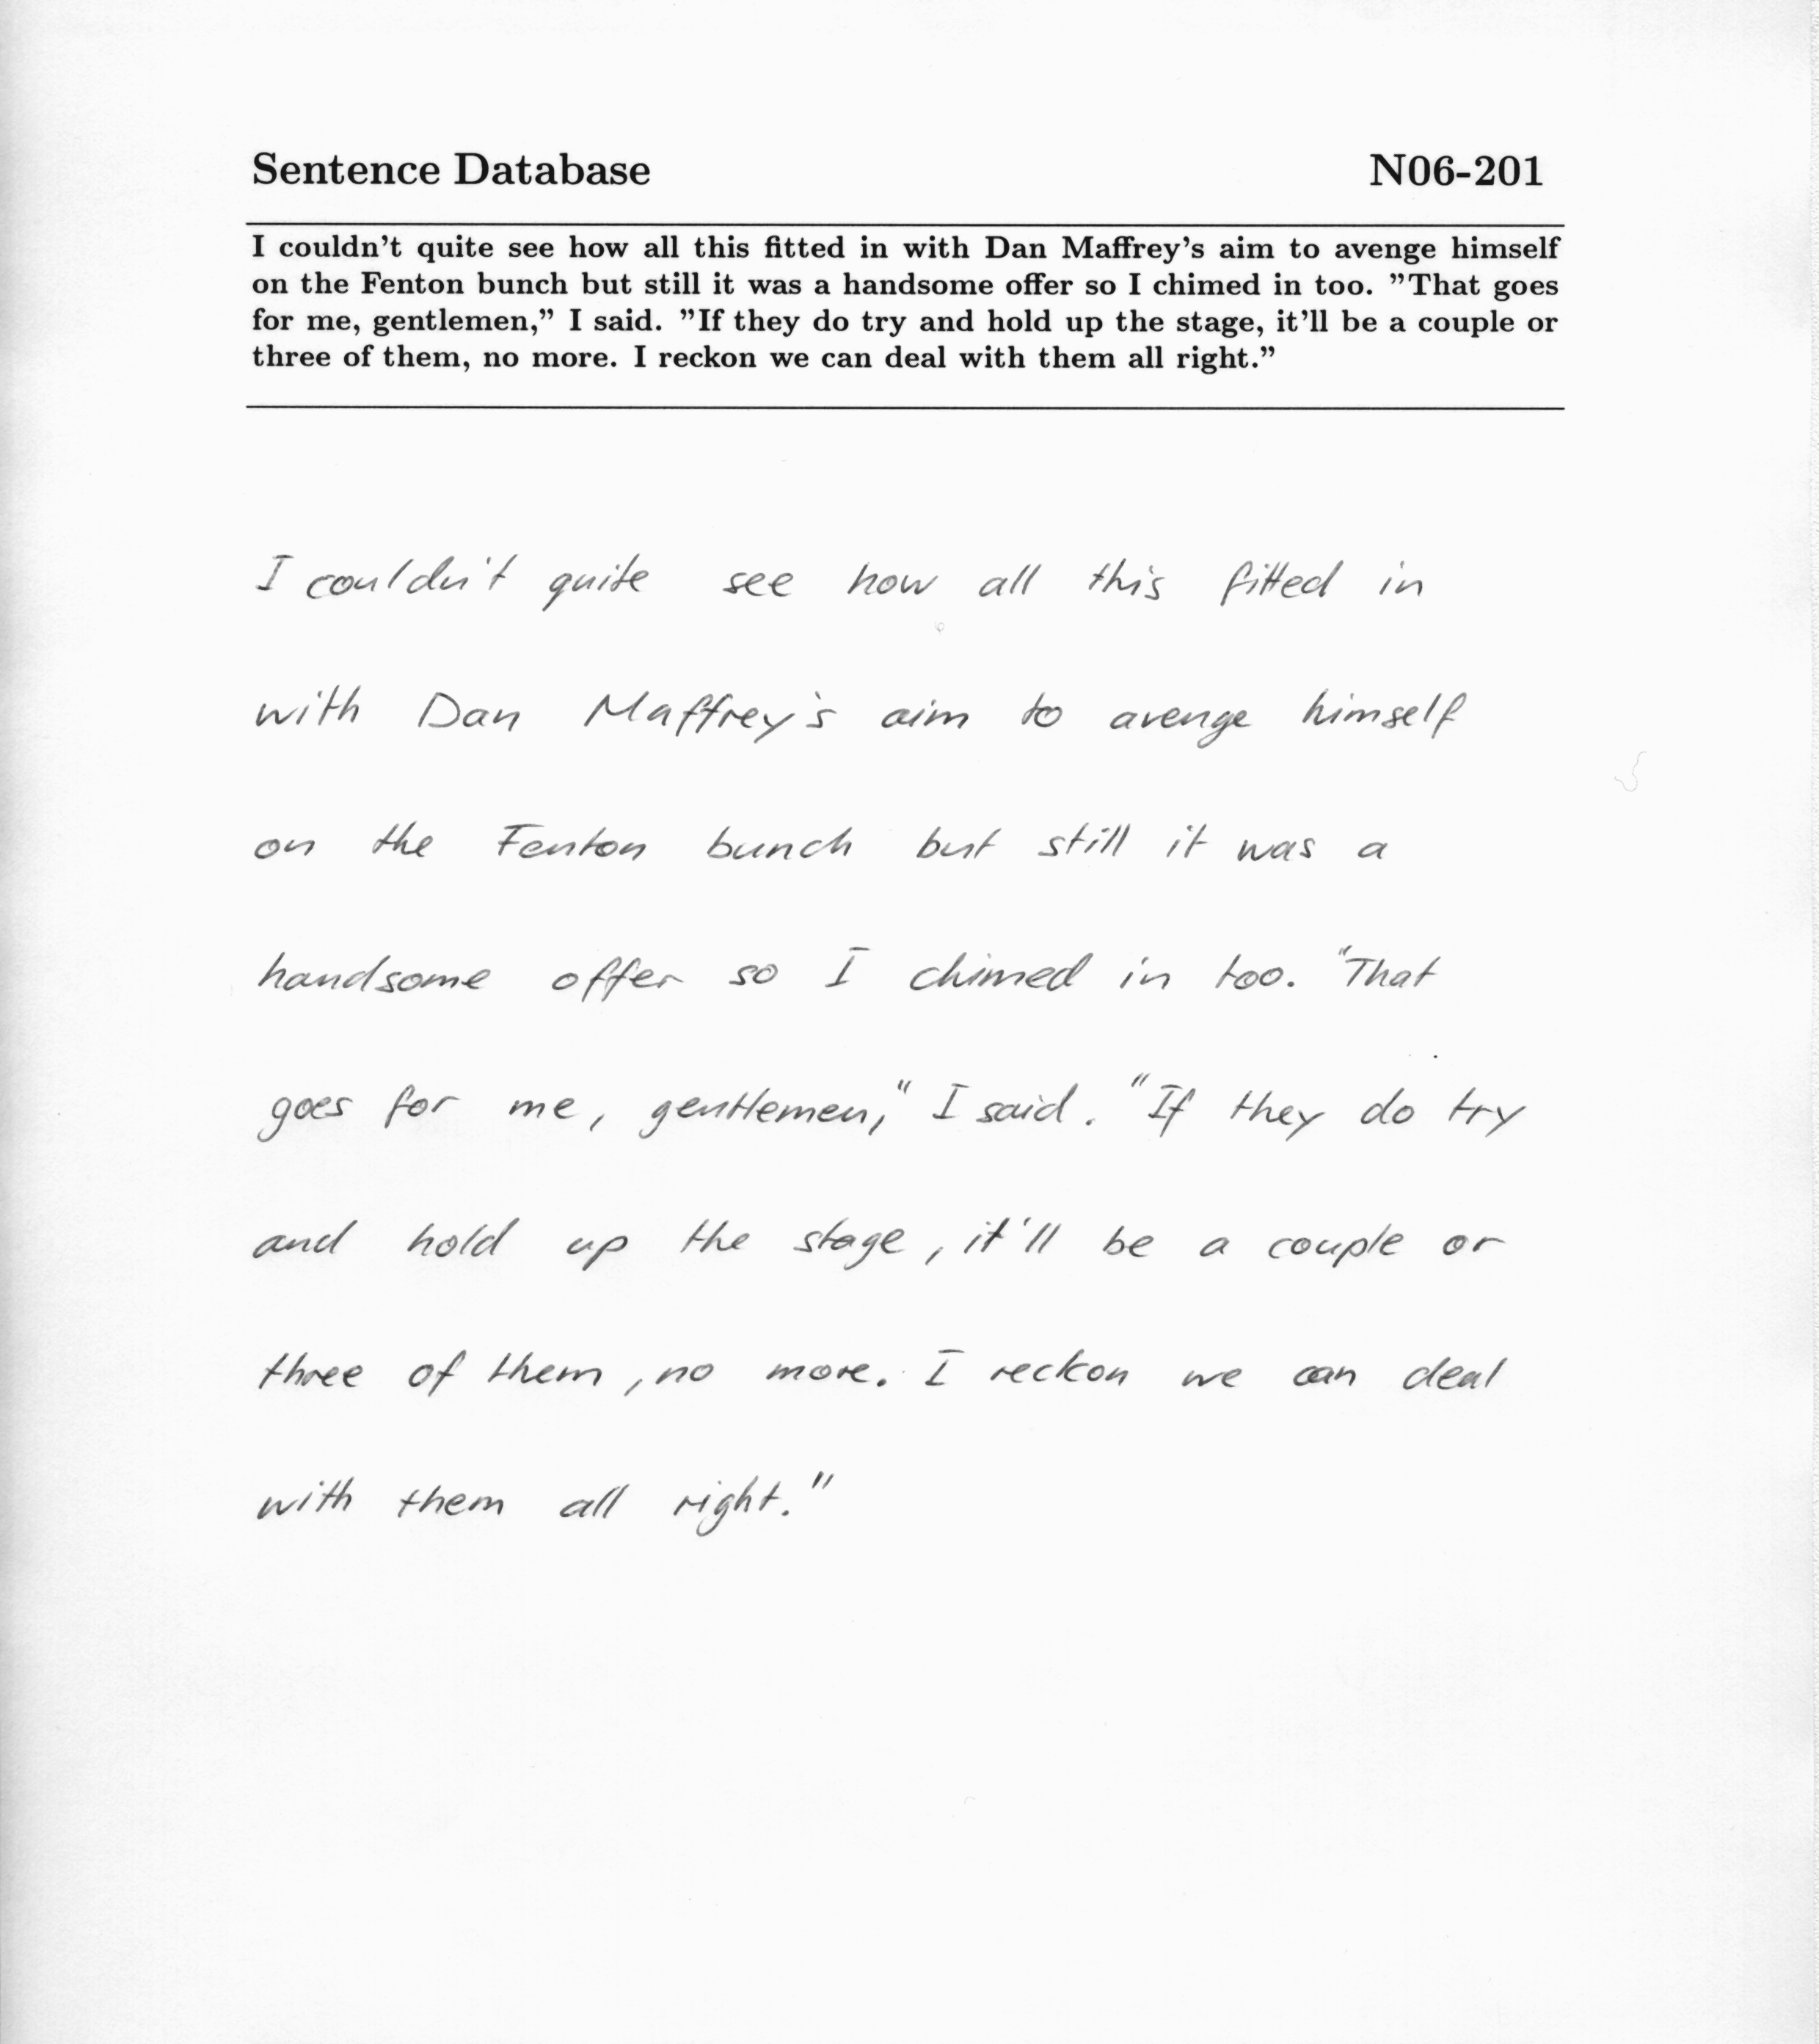 Sentence Database N06-201
I couldn't quite see how all this fitted in with Dan Maffrey's aim to avenge himself
on the Fenton bunch but still it was a handsome offer so I chimed in too. ”That goes
for me, gentlemen,” I said. ”If they do try and hold up the stage, it'll be a couple or
three of them, no more. I reckon we can deal with them all right.”
I couldn't quite see how all this fitted in
with Dan Maffrey's aim to avenge himself
on the Fenton bunch but still it was a
handsome offer so I chimed in too. "That
goes for me, gentlemen," I said. "If they do try
and hold up the stage, it'll be a couple or
three of them, no more. I reckon we can deal
with them all right."